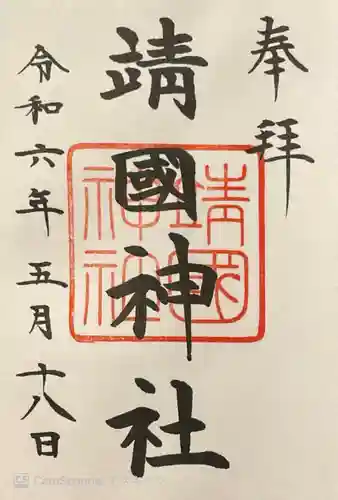 奉拝
靖國神社
靖國神社
令和六年五月十八日
CS CamScanner